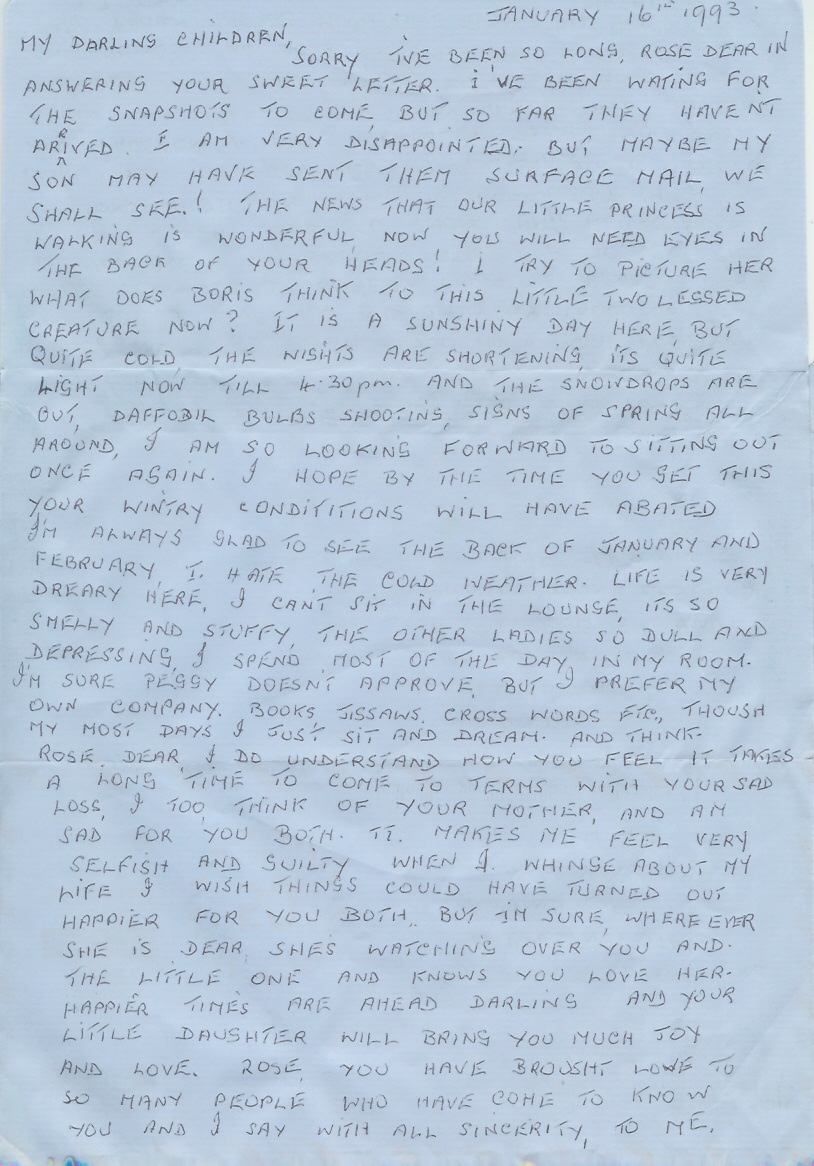 JANUARY 16TH 1993.
MY DARLING CHILDREN,
SORRY I'VE BEEN SO LONG, ROSE DEAR IN
ANSWERING YOUR SWEET LETTER. I'VE BEEN WATING FOR
THE SNAPSHOTS TO COME, BUT SO FAR THEY HAVEN'T
ARRIVED. I AM VERY DISAPPOINTED. BUT MAYBE MY
SON MAY HAVE SENT THEM SURFACE MAIL, WE
SHALL SEE.! THE NEWS THAT OUR LITTLE PRINCESS IS
WALKING IS WONDERFUL, NOW YOU WILL NEED EYES IN
THE BACK OF YOUR HEADS! I TRY TO PICTURE HER
WHAT DOES BORIS THINK TO THIS LITTLE TWO LEGGED
CREATURE NOW? IT IS A SUNSHINY DAY HERE, BUT
QUITE COLD, THE NIGHTS ARE SHORTENING, ITS QUITE
LIGHT NOW TILL 4.30pm. AND THE SNOWDROPS ARE
OUT, DAFFODIL BULBS SHOOTING, SIGNS OF SPRING ALL
AROUND, I AM SO LOOKING FORWARD TO SITTING OUT
ONCE AGAIN. I HOPE BY THE TIME YOU GET THIS
YOUR WINTRY CONDITITIONS WILL HAVE ABATED
I'M ALWAYS GLAD TO SEE THE BACK OF JANUARY AND
FEBRUARY, I. HATE THE COLD WEATHER. LIFE IS VERY
DREARY HERE, I CAN'T SIT IN THE LOUNGE, ITS SO
SMELLY AND STUFFY, THE OTHER LADIES SO DULL AND
DEPRESSING, I SPEND MOST OF THE DAY, IN MY ROOM.
I'M SURE PEGGY DOESN'T APPROVE, BUT I PREFER MY
OWN COMPANY. BOOKS, JIGSAWS, CROSS WORDS ETC, THOUGH
MY MOST DAYS I JUST SIT AND DREAM. AND THINK.
ROSE, DEAR I DO UNDERSTAND HOW YOU FEEL IT TAKES
A LONG TIME TO COME TO TERMS WITH YOUR SAD
LOSS, I TOO, THINK OF YOUR MOTHER, AND AM
SAD FOR YOU BOTH. IT. MAKES ME FEEL VERY
SELFISH AND GUILTY WHEN I. WHINGE ABOUT MY
LIFE I WISH THINGS COULD HAVE TURNED OUT
HAPPIER FOR YOU BOTH. BUT I'M SURE, WHERE EVER
SHE IS DEAR, SHES WATCHING OVER YOU AND.
THE LITTLE ONE AND KNOWS YOU LOVE HER.
HAPPIER TIMES ARE AHEAD DARLING AND YOUR
LITTLE DAUGHTER WILL BRING YOU MUCH JOY
AND LOVE. ROSE, YOU HAVE BROUGHT LOVE TO
SO MANY PEOPLE WHO HAVE COME TO KNOW
YOU AND I SAY WITH ALL SINCERITY, TO ME.